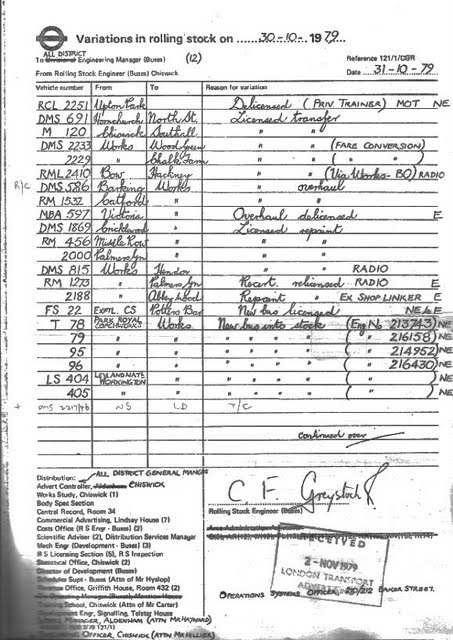 Variations in rolling stock on 30-10-1979.
ALL DISTRICT
To Divisional Engineering Manager (Buses) (12)
Reference 121/1/CGR
From Rolling Stock Engineer (Buses) Chiswick
Date 31-10-79
Vehicle number From To Reason for variation
RCL 2251 Upton Park Delicensed (PRIV TRAINER) MOT NE
DMS 691 Hornchurch North St. Licensed transfer
M 120 Chiswick Southall " "
DMS 2233 Works Wood Green " " (FARE CONVERSION)
2229 " Chalk Farm " " ( " " )
RML 2410 Bow Hackney " " (Via Works - BQ) RADIO
R/C DMS 586 Barking Works " overhaul
RM 1532 Catford " " "
MBA 597 Victoria " Overhaul delicensed E
DMS 1869 Cricklewood " Licensed repaint
RM 456 Middle Row " " "
2000 Palmers Gn " " "
DMS 815 Works Hendon " " RADIO
RM 1273 " Palmers Gn Recert. relicensed RADIO E
2188 " Abbey Wood Repaint " EX SHOP LINKER E
FS 22 EXPTL. CS Potters Bar New bus licensed NE & E
T 78 PARK ROYAL COACHWORKS Works New bus into stock (Eng No. 213743) NE
79 " " " " " " ( " 216158) NE
95 " " " " " " ( " 214952) NE
96 " " " " " " ( " 216430) NE
LS 404 LEYLAND NATL WORKINGTON " " " " " ( " ) NE
405 " " " " " " ( " ) NE
+ NS LD T/C
continued over
Distribution: ALL DISTRICT GENERAL MANGRS
Advert Controller, Aldenham CHISWICK
Works Study, Chiswick (1)
Body Spec Section
Central Record, Room 34
Commercial Advertising, Lindsay House (7)
Costs Office (R S Engr - Buses) (2)
Scientific Adviser (2), Distribution Services Manager
Mech Engr (Development - Buses) (3)
R S Licensing Section (5), R S Inspection
Statistical Office, Chiswick (2)
Director of Development (Buses)
Schedules Supt - Buses (Attn of Mr Hyslop)
Revenue Office, Griffith House, Room 432 (2)
Training School, Chiswick (Attn of Mr Carter)
Development Engr, Signalling, Telstar House
MANAGER, ALDENHAM (ATTN MR HAYWARD)
OFFICER, CHISWICK (ATTN MR HELLIER)
C. F. Greystock
Rolling Stock Engineer (Buses)
RECEIVED
2 - NOV 1979
LONDON TRANSPORT
OPERATIONS SYSTEMS OFFICER, 210/212 BAKER STREET.